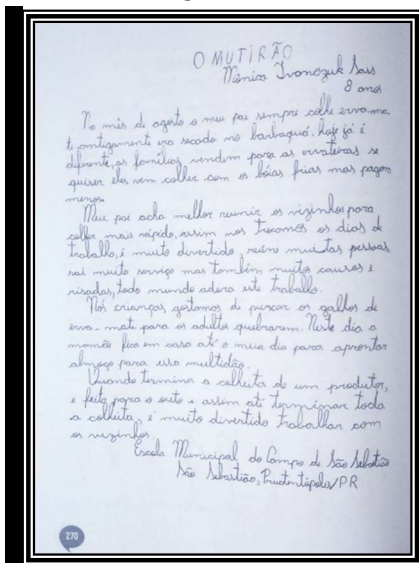 O MUTIRÃO
Mônica Ivonczuk Sass
8 anos
No mês de agosto o meu pai sempre colhe erva-ma
te, antigamente era secado no barbaquá, hoje já é
diferente, as famílias vendem para as ervateiras se
quiser eles vem colher com os bóias frias mas pagam
menos.
Meu pai acha melhor reunir os vizinhos para
colher mais rápido, assim nos trocamos os dias de
trabalho, é muito divertido, reúne muitas pessoas
sai muito serviço mas também muitos causos e
risadas, todo mundo adora este trabalho.
Nós crianças, gostamos de puxar os galhos de
erva-mate para os adultos quebrarem. Neste dia a
mamãe fica em casa até o meio dia para aprontar
almoço para essa multidão.
Quando termina a colheita de um produtor,
é feito para o outo e assim até terminar toda
a colheita, é muito divertido trabalhar com
os vizinhos.
Escola Municipal do Campo de São Sebastião
São Sebastião, Prudentópolis/PR
270